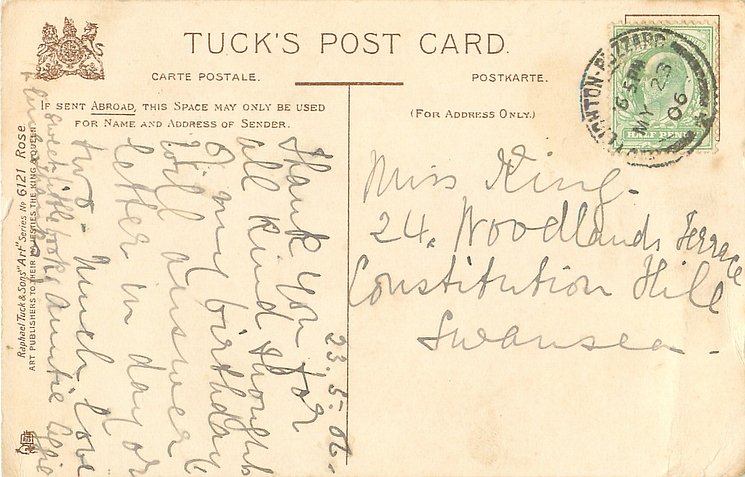 TUCK'S POST CARD.
CARTE POSTALE.
POSTKARTE.
IF SENT ABROAD, THIS SPACE MAY ONLY BE USED
FOR NAME AND ADDRESS OF SENDER.
(FOR ADDRESS ONLY.)
LEIGHTON-BUZZARD
6 5 PM
MY 23
06
HALF PENNY
Miss King.
24. Woodlands Terrace
Constitution Hill
Swansea.
23.5.06.
Thank you for
all kind thought
of my birthday
will answer
letter in day or
two - Much love
Auntie Aggie
sweet little book
Raphael Tuck & Sons' "Art" Series No 6121 Rose
ART PUBLISHERS TO THEIR MAJESTIES THE KING & QUEEN